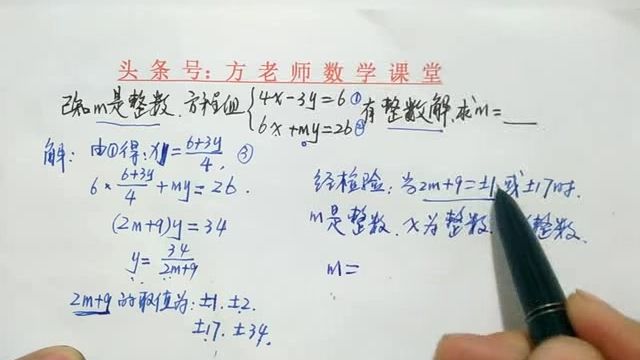 头条号：方老师数学课堂
已知m是整数,方程组{4x-3y=6① 有整数解,求m=___
6x+my=26②
解：由①得：x=(6+3y)/4,③
6×(6+3y)/4+my=26.
(2m+9)y=34
y=34/(2m+9)
2m+9的取值为：±1.±2.
±17.±34.
经检验：当2m+9=±1或±17时.
m是整数.x为整数.整数.
m=